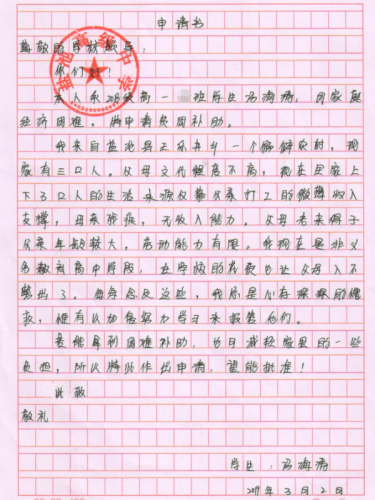 申请书
尊敬的学校领导：
你们好！
本人系 级高一 班学生冯海涛，因家庭
经济困难，特申请贫困补助。
我来自盐池县王乐井乡一个 农村，现
家有三口人。父母文化程度不高，现在是家上
下3口人的生活来源仅靠父亲打工的微薄收入
支撑，母亲残疾，无收入能力。父母老来得子
父亲年龄较大，劳动能力有限。我现在是非义
务教育高中阶段，在学校的花费也让父母入不
敷出了。每每念及这些，我总是心存深深的愧
疚，唯有以加倍努力学习来报答他们。
若能拿到困难补助，为了减轻家里的一些
负担，所以特此作出申请，望能批准！
此致
敬礼
学生：冯海涛
3月2日
盐池高级中学